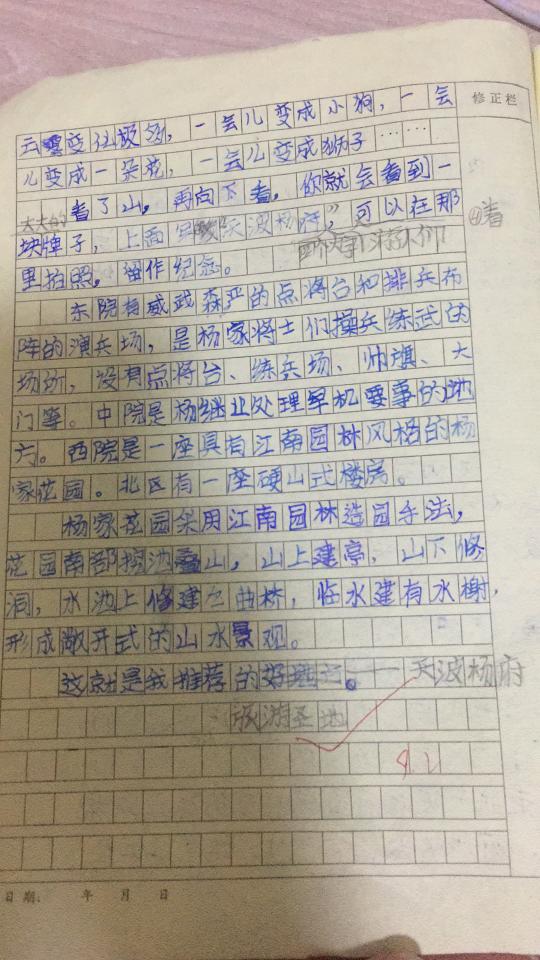 修正栏
云变化极为，一会儿变成小狗，一会
儿变成一朵花，一会儿变成狮子……
看了山，再向下看，你就会看到一
大大的
块牌子，上面天波杨府，”可以在那
④看
里拍照。留作纪念。
东院有威武森严的点将台和排兵布
阵的演兵场，是杨家将士们操兵练武的
场所，设有点将台、练兵场、帅旗、大
门等。中院是杨继业处理军机要事的地
方。西院是一座具有江南园林风格的杨
家花园。北区有一座硬山式楼房。
杨家花园采用江南园林造园手法，
花园南部挖池叠山，山上建亭，山下修
洞，水池上修建曲桥，临水建有水榭，
形成敞开式的山水景观。
这就是我推荐的好——天波杨府
旅游圣地
日期： 年 月 日